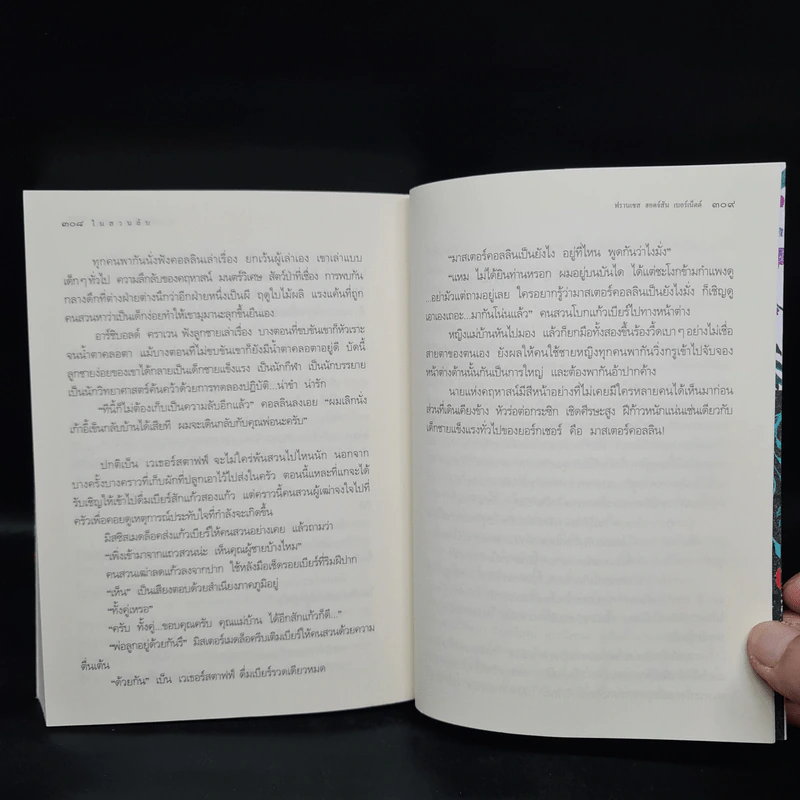 ๓๐๘ ในสวนลับ
ทุกคนพากันนั่งฟังคอลลินเล่าเรื่อง ยกเว้นผู้เล่าเอง เขาเล่าแบบ
เด็กๆ ทั่วไป ความลึกลับของคฤหาสน์ มนตร์วิเศษ สัตว์ป่าที่เชื่อง การพบกัน
กลางดึกที่ต่างฝ่ายต่างนึกว่าอีกฝ่ายหนึ่งเป็นผี ฤดูใบไม้ผลิ แรงแค้นที่ถูก
คนสวนหาว่าเป็นเด็กง่อยทำให้เขามุมานะลุกขึ้นยืนเอง
อาร์ชิบอลด์ คราเวน ฟังลูกชายเล่าเรื่อง บางตอนที่ขบขันเขาก็หัวเราะ
จนน้ำตาคลอตา แม้บางตอนที่ไม่ขบขันเขาก็ยังมีน้ำตาคลอตาอยู่ดี บัดนี้
ลูกชายง่อยของเขาได้กลายเป็นเด็กชายแข็งแรง เป็นนักกีฬา เป็นนักบรรยาย
เป็นนักวิทยาศาสตร์ค้นคว้าด้วยการทดลองปฏิบัติ...น่าขำ น่ารัก
“ทีนี้ก็ไม่ต้องเก็บเป็นความลับอีกแล้ว” คอลลินลงเอย “ผมเลิกนั่ง
เก้าอี้เข็นกลับบ้านได้เสียที ผมจะเดินกลับกับคุณพ่อนะครับ”
ปกติเบ็น เวเธอร์สตาฟฟ์ จะไม่ใคร่พ้นสวนไปไหนนัก นอกจาก
บางครั้งบางคราวที่เก็บผักที่ปลูกเอาไว้ไปส่งในครัว ตอนนี้แหละที่แกจะได้
รับเชิญให้เข้าไปดื่มเบียร์สักแก้วสองแก้ว แต่คราวนี้คนสวนผู้เฒ่าจงใจไปที่
ครัวเพื่อคอยดูเหตุการณ์ประทับใจที่กำลังจะเกิดขึ้น
มิสซิสเมดล็อคส่งแก้วเบียร์ให้คนสวนอย่างเคย แล้วถามว่า
“เพิ่งเข้ามาจากแถวสวนน่ะ เห็นคุณผู้ชายบ้างไหม”
คนสวนเฒ่าลดแก้วลงจากปาก ใช้หลังมือเช็ดรอยเบียร์ที่ริมฝีปาก
“เห็น” เป็นเสียงตอบด้วยสำเนียงภาคภูมิอยู่
“ทั้งคู่เหรอ”
“ครับ ทั้งคู่...ขอบคุณครับ คุณแม่บ้าน ได้อีกสักแก้วก็ดี...”
“พ่อลูกอยู่ด้วยกันรึ” มิสเตอร์เมดล็อครีบเติมเบียร์ให้คนสวนด้วยความ
ตื่นเต้น
“ด้วยกัน” เบ็น เวเธอร์สตาฟฟ์ ดื่มเบียร์รวดเดียวหมด
ฟรานเซส ฮอดจ์สัน เบอร์เน็ตต์ ๓๐๙
“มาสเตอร์คอลลินเป็นยังไง อยู่ที่ไหน พูดกันว่าไงมั่ง”
“แหม ไม่ได้ยินท่านหรอก ผมอยู่บนบันได ได้แต่ชะโงกข้ามกำแพงดู
...อย่ามัวแต่ถามอยู่เลย ใครอยากรู้ว่ามาสเตอร์คอลลินเป็นยังไงมั่ง ก็เชิญดู
เอาเองเถอะ...มากันโน่นแล้ว” คนสวนโบกแก้วเบียร์ไปทางหน้าต่าง
หญิงแม่บ้านหันไปมอง แล้วก็ยกมือทั้งสองขึ้นร้องวี้ดเบาๆ อย่างไม่เชื่อ
สายตาของตนเอง ยังผลให้คนใช้ชายหญิงทุกคนพากันวิ่งกรูเข้าไปจับจอง
หน้าต่างด้านนั้นกันเป็นการใหญ่ และต้องพากันอ้าปากค้าง
นายแห่งคฤหาสน์มีสีหน้าอย่างที่ไม่เคยมีใครหลายคนได้เห็นมาก่อน
ส่วนที่เดินเคียงข้าง หัวร่อต่อกระซิก เชิดศีรษะสูง ฝีก้าวหนักแน่นเช่นเดียวกับ
เด็กชายแข็งแรงทั่วไปของยอร์กเชอร์ คือ มาสเตอร์คอลลิน!